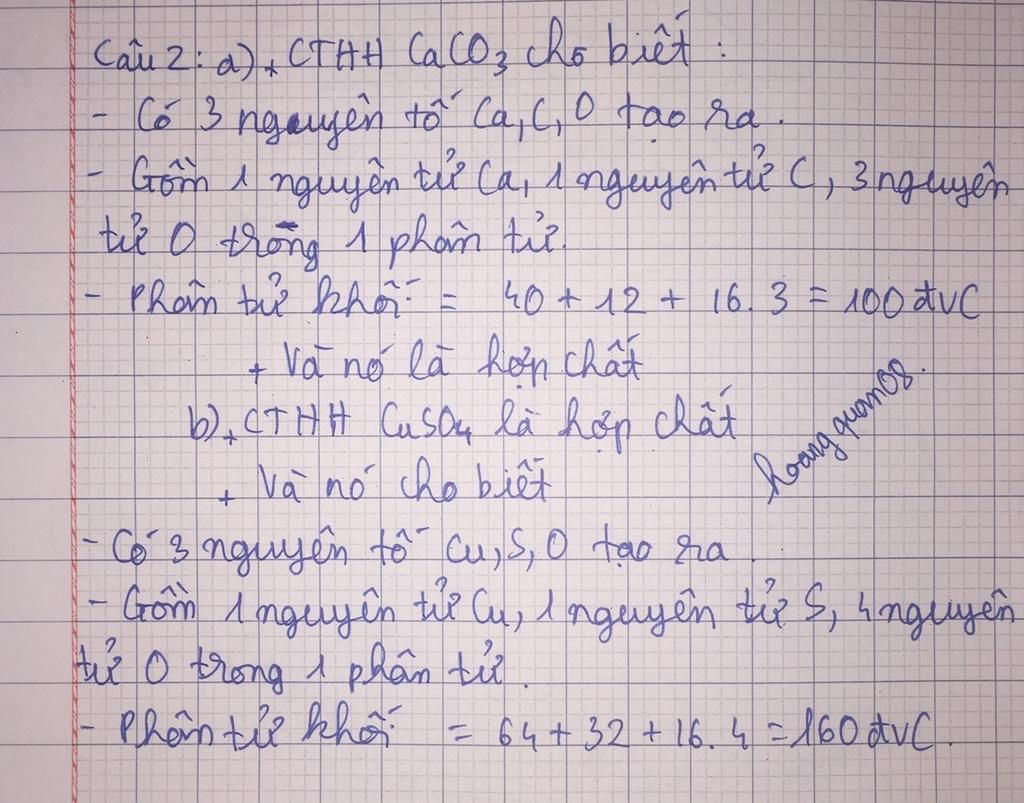 Câu 2: a), + CTHH CaCO₃ cho biết :
- Có 3 nguyên tố Ca, C, O tạo ra .
- Gồm 1 nguyên tử Ca, 1 nguyên tử C, 3 nguyên
tử O trong 1 phân tử.
- Phân tử khối = 40 + 12 + 16 . 3 = 100 đvC
+ Và nó là hợp chất
b), + CTHH CuSO₄ là hợp chất
hoangquan08.
+ Và nó cho biết
- Có 3 nguyên tố Cu, S, O tạo ra .
- Gồm 1 nguyên tử Cu, 1 nguyên tử S, 4 nguyên
tử O trong 1 phân tử .
- Phân tử khối = 64 + 32 + 16 . 4 = 160 đvC .